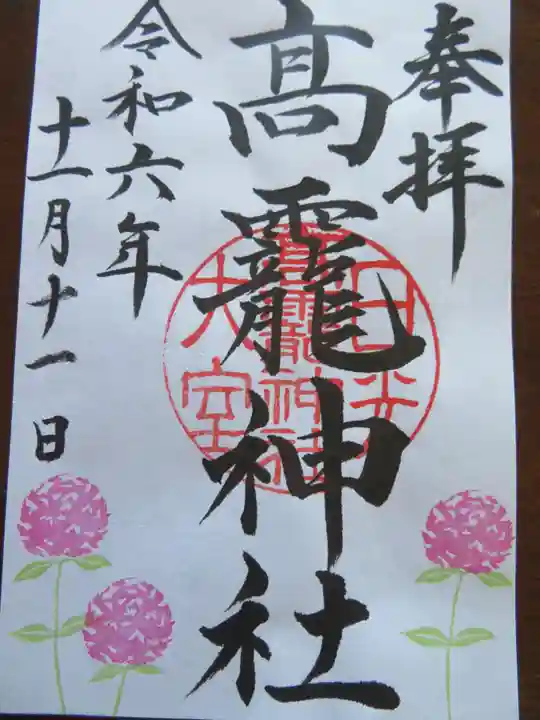 奉拝
髙龗神社
日光
髙龗神社
大室
令和六年
十一月十一日